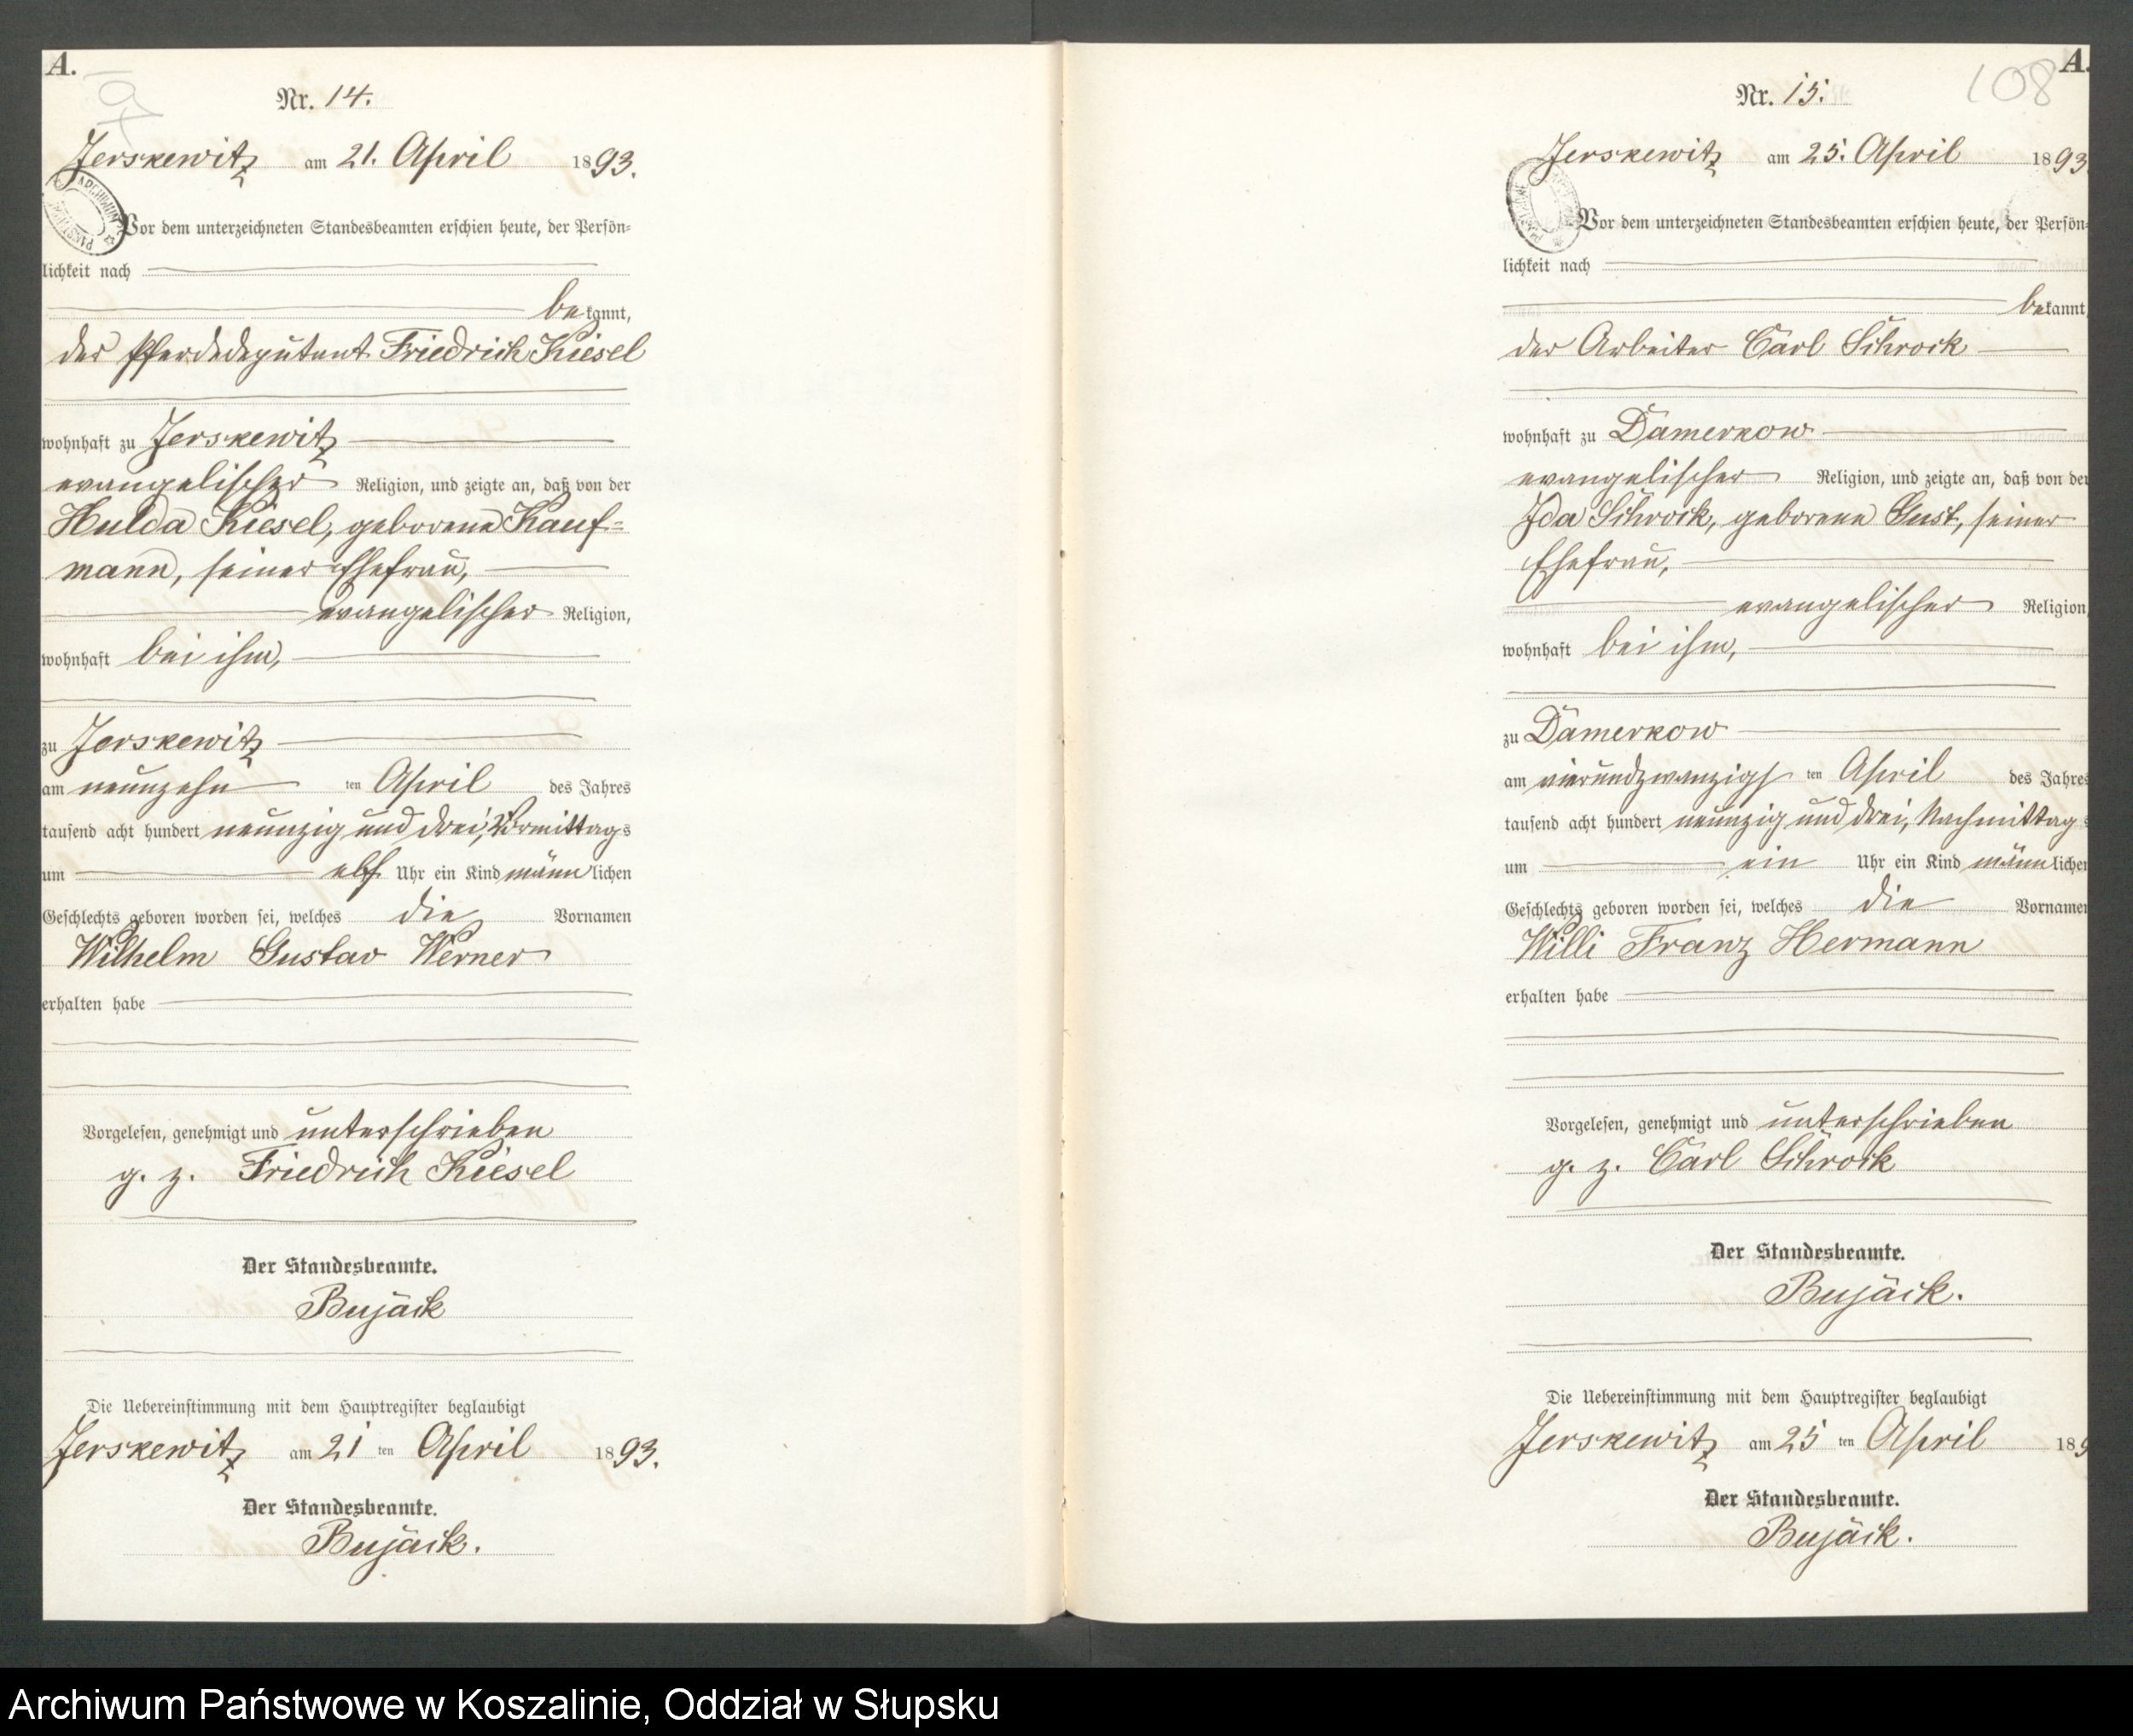 A.
Nr. 14.
Jerskewitz am 21. April 1893.
Vor dem unterzeichneten Standesbeamten erschien heute, der Persön=
lichkeit nach
bekannt,
der Pferdedeputant Friedrich Kiesel
wohnhaft zu Jerskewitz
evangelischer Religion, und zeigte an, daß von der
Hulda Kiesel, geborene Kauf=
mann, seiner Ehefrau,
evangelischer Religion,
wohnhaft bei ihm,
zu Jerskewitz
am neunzehn ten April des Jahres
tausend acht hundert neunzig und drei, Vormittags
um elf Uhr ein Kind männlichen
Geschlechts geboren worden sei, welches die Vornamen
Wilhelm Gustav Werner
erhalten habe
Vorgelesen, genehmigt und unterschrieben
g. z. Friedrich Kiesel
Der Standesbeamte.
Bujäck
Die Uebereinstimmung mit dem Hauptregister beglaubigt
Jerskewitz am 21 ten April 1893.
Der Standesbeamte.
Bujäck.
A.
108
Nr. 15.
Jerskewitz am 25. April 1893.
Vor dem unterzeichneten Standesbeamten erschien heute, der Persön=
lichkeit nach
bekannt,
der Arbeiter Carl Schrock
wohnhaft zu Damerkow
evangelischer Religion, und zeigte an, daß von der
Ida Schrock, geborene Gust, seiner
Ehefrau,
evangelischer Religion,
wohnhaft bei ihm,
zu Damerkow
am vierundzwanzigs ten April des Jahres
tausend acht hundert neunzig und drei, Nachmittags
um ein Uhr ein Kind männlichen
Geschlechts geboren worden sei, welches die Vornamen
Willi Franz Hermann
erhalten habe
Vorgelesen, genehmigt und unterschrieben
g. z. Carl Schrock
Der Standesbeamte.
Bujäck.
Die Uebereinstimmung mit dem Hauptregister beglaubigt
Jerskewitz am 25 ten April 189
Der Standesbeamte.
Bujäck.
Archiwum Państwowe w Koszalinie, Oddział w Słupsku